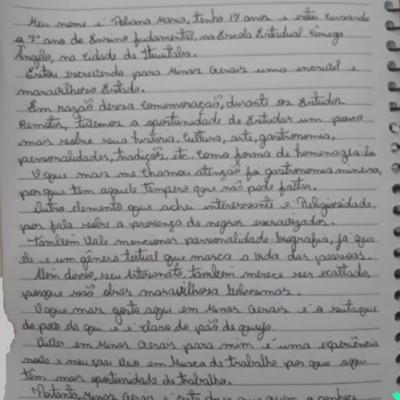 Meu nome é Poliana Maria, tenho 17 anos e estou cursando
o 7º ano do Ensino fundamental, na Escola Estadual Cônego
Ângelo, na cidade de Ituiutaba.
Estou escrevendo para Minas Gerais uma incrível e
maravilhoso Estado.
Em razão dessa comemoração, durante os Estudos
Remotos, tivemos a oportunidade de Estudar um pouco
mais sobre sua história, cultura, arte, gastronomia,
personalidades, tradições, etc. como forma de homenageá-lo.
O que mais me chamou atenção foi gastronomia mineira,
por que tem aquele tempero que não pode faltar.
Outro elemento que achei interessante é Religiosidade
por fala sobre a presença de negros escravizados.
Também vale mencionar personalidade biografia, já que
ele é um gênero textual que marca a vida das pessoas.
Além disso, seu Artesanato, também merece ser exaltado,
porque são obras maravilhosa
O que mais gosto aqui em Minas Gerais é o sotaque
do povo da qui e é claro do pão de queijo.
em Minas Gerais para mim é uma experiência
e meu pai veio em busca de trabalho por que aqui
têm mais oportunidade de trabalho.
Portanto, Minas Gerais é quem a conhece